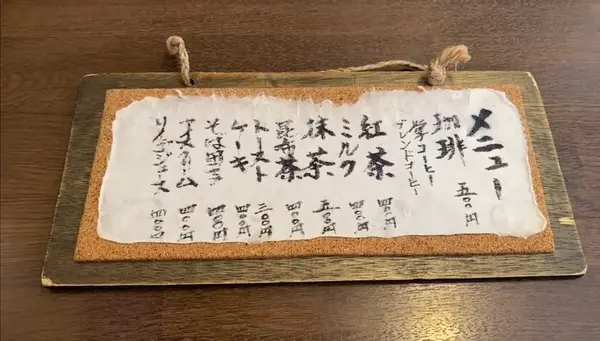 メニュー
珈琲 五〇〇円
コーヒー
ブレンドコーヒー
紅茶 四〇〇円
ミルク 四〇〇円
抹茶 五〇〇円
昆布茶 四〇〇円
トースト 三〇〇円
ケーキ 四〇〇円
そば 四〇〇円
アイスクリーム 四〇〇円
リンゴジュース 四〇〇円